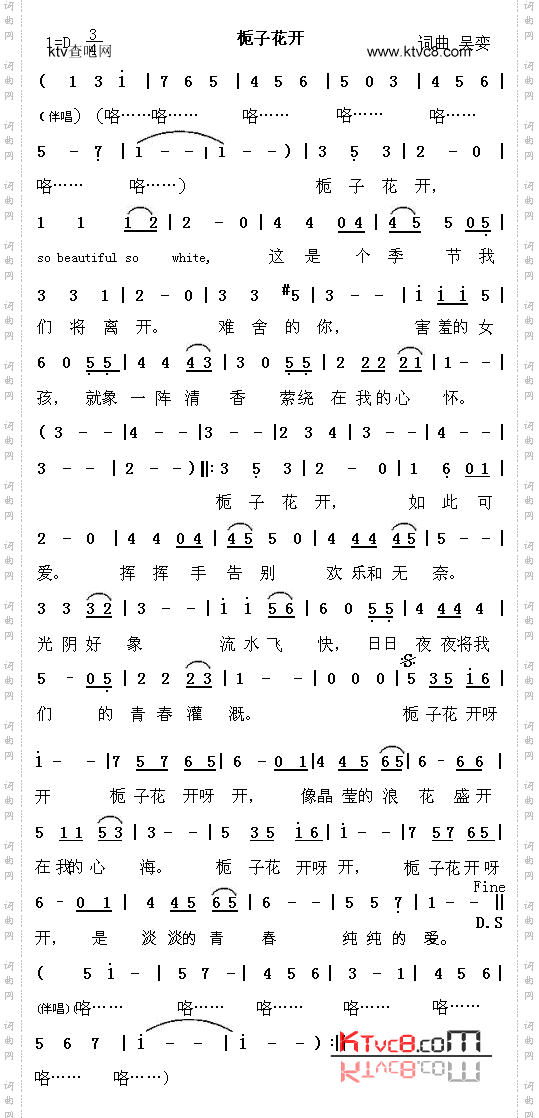 栀子花开
1=D 3/4 ktv查吧网 www.ktvc8.com 词曲 吴娈
( 1 3 i | 7 6 5 | 4 5 6 | 5 0 3 | 4 5 6 |
(伴唱) (咯……咯…… 咯…… 咯…… 咯……
5 - 7 | 1 - - | 1 - - ) | 3 5 3 | 2 - 0 |
咯…… 咯……) 栀 子 花 开,
1 1 1 2 | 2 - 0 | 4 4 0 4 | 4 5 5 0 5 |
so beautiful so white, 这 是 个 季 节 我
3 3 1 | 2 - 0 | 3 3 #5 | 3 - - | i i i 5 |
们 将 离 开。 难 舍 的 你, 害 羞的 女
6 0 5 5 | 4 4 4 3 | 3 0 5 5 | 2 2 2 2 2 1 | 1 - - |
孩, 就象 一 阵 清 香 萦绕 在 我 的 心 怀。
( 3 - - | 4 - - | 3 - - | 2 3 4 | 3 - - | 4 - - |
3 - - | 2 - - ) ‖: 3 5 3 | 2 - 0 | 1 6 0 1 |
栀 子 花 开, 如 此 可
2 - 0 | 4 4 0 4 | 4 5 5 0 | 4 4 4 4 5 | 5 - - |
爱。 挥 挥 手 告 别 欢 乐和 无 奈。
3 3 3 2 | 3 - - | i i 5 6 | 6 0 5 5 | 4 4 4 4 |
光 阴 好 象 流 水 飞 快, 日日 夜 夜将我
5 - 0 5 | 2 2 2 3 | 1 - - | 0 0 0 | 5 3 5 i 6 |
们 的 青 春 灌 溉。 栀 子花 开呀
i - - | 7 5 7 6 5 | 6 - 0 1 | 4 4 5 6 5 | 6 - 6 6 |
开 栀 子花 开呀 开, 像晶 莹的 浪 花 盛开
5 1 1 5 3 | 3 - - | 5 3 5 i 6 | i - - | 7 5 7 6 5 |
在 我的 心 海。 栀 子花 开呀 开, 栀 子花 开 呀
Fine
6 - 0 1 | 4 4 5 6 5 | 6 - - | 5 5 7 | 1 - - ‖
D.S
开, 是 淡 淡的 青 春 纯 纯 的 爱。
( 5 i - | 5 7 - | 4 5 6 | 3 - 1 | 4 5 6 |
(伴唱)(咯…… 咯…… 咯…… 咯…… 咯……
5 6 7 | i - - | i - - ) :‖ KTvc8.com
咯…… 咯……)